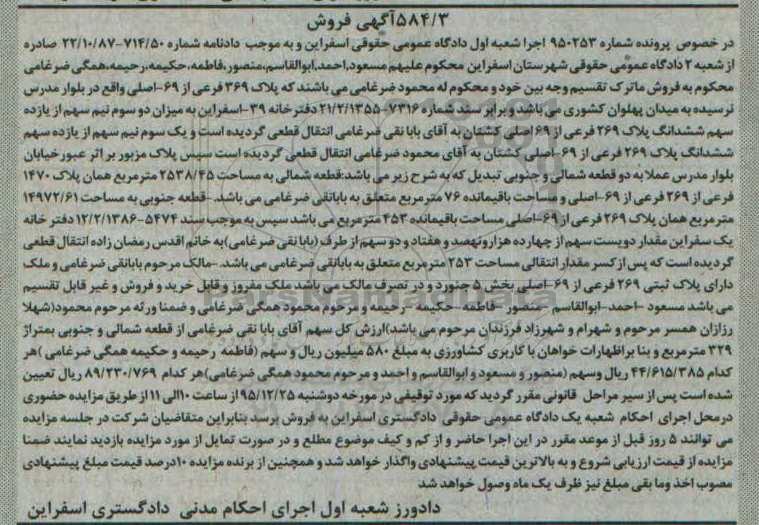 ۵۸۴/۳آگهی فروش
در خصوص پرونده شماره ۹۵۰۲۵۳ اجرا شعبه اول دادگاه عمومی حقوقی اسفراین و به موجب دادنامه شماره ۷۱۴/۵۰-۲۲/۱۰/۸۷ صادره
از شعبه ۲ دادگاه عمومی حقوقی شهرستان اسفراین محکوم علیهم مسعود،احمد،ابوالقاسم،منصور،فاطمه،حکیمه،رحیمه،همگی ضرغامی
محکوم به فروش ماترک تقسیم وجه بین خود و محکوم له محمود ضرغامی می باشند که پلاک ۳۶۹ فرعی از ۶۹-اصلی واقع در بلوار مدرس
نرسیده به میدان پهلوان کشوری می باشد و برابر سند شماره ۷۳۱۶-۲۱/۲/۱۳۵۵ دفتر خانه ۳۹-اسفراین به میزان دو سوم نیم سهم از یازده
سهم ششدانگ پلاک ۲۶۹ فرعی از ۶۹ اصلی کشتان به آقای بابا نقی ضرغامی انتقال قطعی گردیده است و یک سوم نیم سهم از یازده سهم
ششدانگ پلاک ۲۶۹ فرعی از ۶۹-اصلی کشتان به آقای محمود ضرغامی انتقال قطعی گردیده است سپس پلاک مزبور بر اثر عبور خیابان
بلوار مدرس عملا به دو قطعه شمالی و جنوبی تبدیل که به شرح زیر می باشد:قطعه شمالی به مساحت ۲۵۳۸/۴۵ مترمربع همان پلاک ۱۴۷۰
فرعی از ۲۶۹ فرعی از ۶۹-اصلی و مساحت باقیمانده ۷۶ مترمربع متعلق به بابانقی ضرغامی می باشد.-قطعه جنوبی به مساحت ۱۴۹۷۲/۶۱
مترمربع همان پلاک ۲۶۹ فرعی از ۶۹-اصلی مساحت باقیمانده ۴۵۳ مترمربع می باشد سپس به موجب سند ۵۴۷۴-۱۲/۲/۱۳۸۶ دفتر خانه
یک سفراین مقدار دویست سهم از چهارده هزارونهصد و هفتاد و دو سهم از طرف (بابا نقی ضرغامی)به خانم اقدس رمضان زاده انتقال قطعی
گردیده است که پس از کسر مقدار انتقالی مساحت ۲۵۳ مترمربع متعلق به بابانقی ضرغامی می باشد. -مالک مرحوم بابانقی ضرغامی و ملک
دارای پلاک ثبتی ۲۶۹ فرعی از ۶۹-اصلی بخش ۵ جنورد و در تصرف مالک می باشد ملک مفروز و قابل خرید و فروش و غیر قابل تقسیم
می باشد مسعود -احمد-ابوالقاسم -منصور-فاطمه-حکیمه -رحیمه و مرحوم محمود همگی ضرغامی و ضمنا ورثه مرحوم محمود(شهلا
رزازان همسر مرحوم و شهرام و شهرزاد فرزندان مرحوم می باشد)ارزش کل سهم آقای بابا نقی ضرغامی از قطعه شمالی و جنوبی بمتراژ
۳۲۹ مترمربع و بنا براظهارات خواهان با کاربری کشاورزی به مبلغ ۵۸۰ میلیون ریال و سهم (فاطمه رحیمه و حکیمه همگی ضرغامی )هر
کدام ۴۴/۶۱۵/۳۸۵ ریال وسهم (منصور و مسعود و ابوالقاسم و احمد و مرحوم محمود همگی ضرغامی)هر کدام ۸۹/۲۳۰/۷۶۹ ریال تعیین
شده است پس از سیر مراحل قانونی مقرر گردید که مورد توقیفی در مورخه دوشنبه ۹۵/۱۲/۲۵ از ساعت ۱۰الی ۱۱ از طریق مزایده حضوری
در محل اجرای احکام شعبه یک دادگاه عمومی حقوقی دادگستری اسفراین به فروش برسد بنابراین متقاضیان شرکت در جلسه مزایده
می توانند ۵ روز قبل از موعد مقرر در این اجرا حاضر و از کم و کیف موضوع مطلع و در صورت تمایل از مورد مزایده بازدید نمایند ضمنا
مزایده از قیمت ارزیابی شروع و به بالاترین قیمت پیشنهادی واگذار خواهد شد و همچنین از برنده مزایده ۱۰درصد قیمت مبلغ پیشنهادی
مصوب اخذ وما بقی مبلغ نیز ظرف یک ماه وصول خواهد شد
دادورز شعبه اول اجرای احکام مدنی دادگستری اسفراین
ParsNamadData